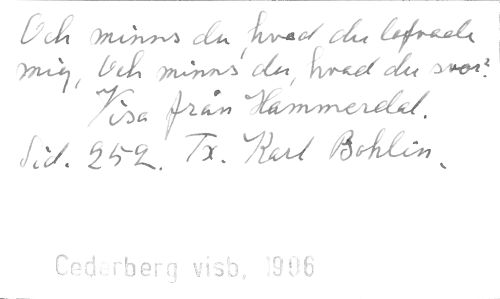 Och minns du, hvad du lofvade
mig, Och minns du, hvad du svor?
Visa från Hammerdal.
Sid. 252. Tx. Karl Bohlin.
Cederberg visb, 1906